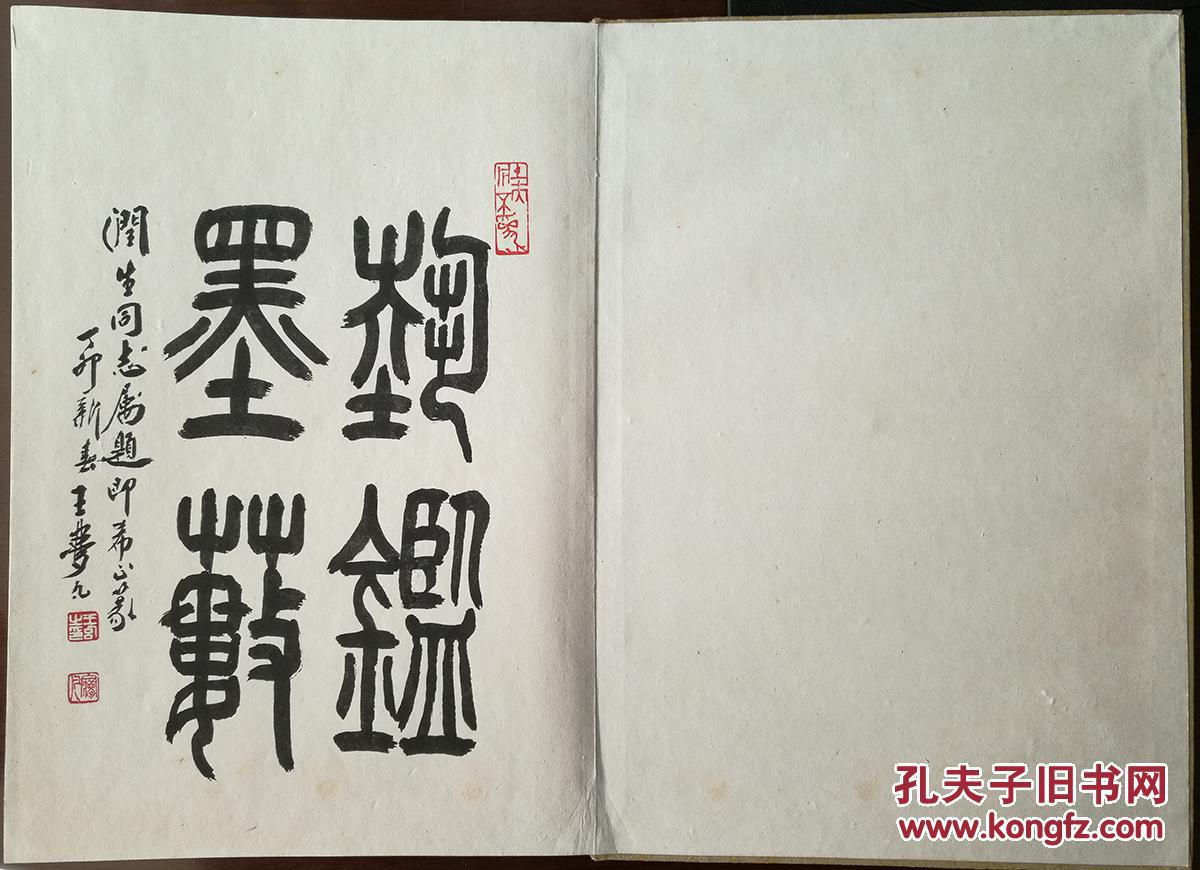 藝鑑
墨藪
潤生同志屬題即希正篆
丁卯新春王夢凡
孔夫子旧书网
www.kongfz.com